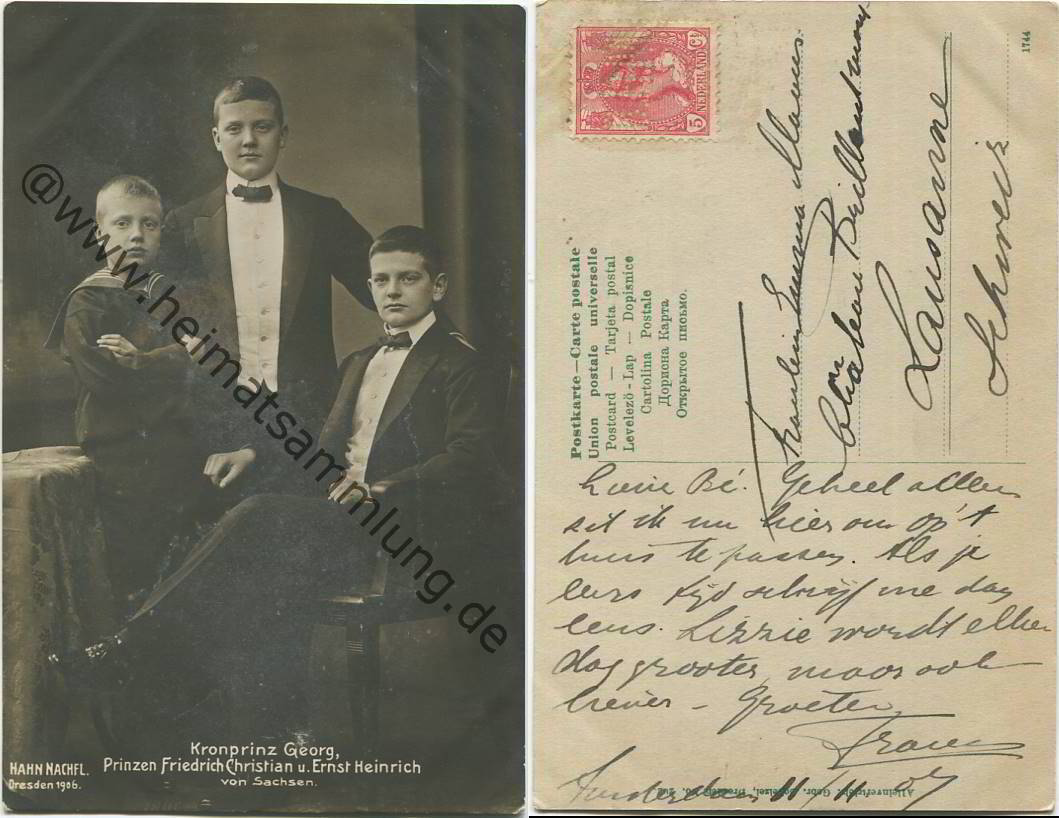 @www.heimatsammlung.de
Kronprinz Georg,
Prinzen Friedrich Christian u. Ernst Heinrich
von Sachsen.
HAHN NACHFL.
Dresden 1906.
5 NEDERLAND Ct
1744
Postkarte — Carte postale
Union postale universelle
Postcard — Tarjeta postal
Levelezö-Lap — Dopisnice
Cartolina Postale
Дописна Карта
Открытое письмо.
Fraulein
Lausanne
Schweiz
Lieve Bé. Geheel alleen
zit ik nu hier om op 't
huis te passen. Als je
eens tijd schrijf me dan
eens. Lizzie wordt elken
dag grooter, maar ook
liever – Groeten
Amsterdam 11/11 07